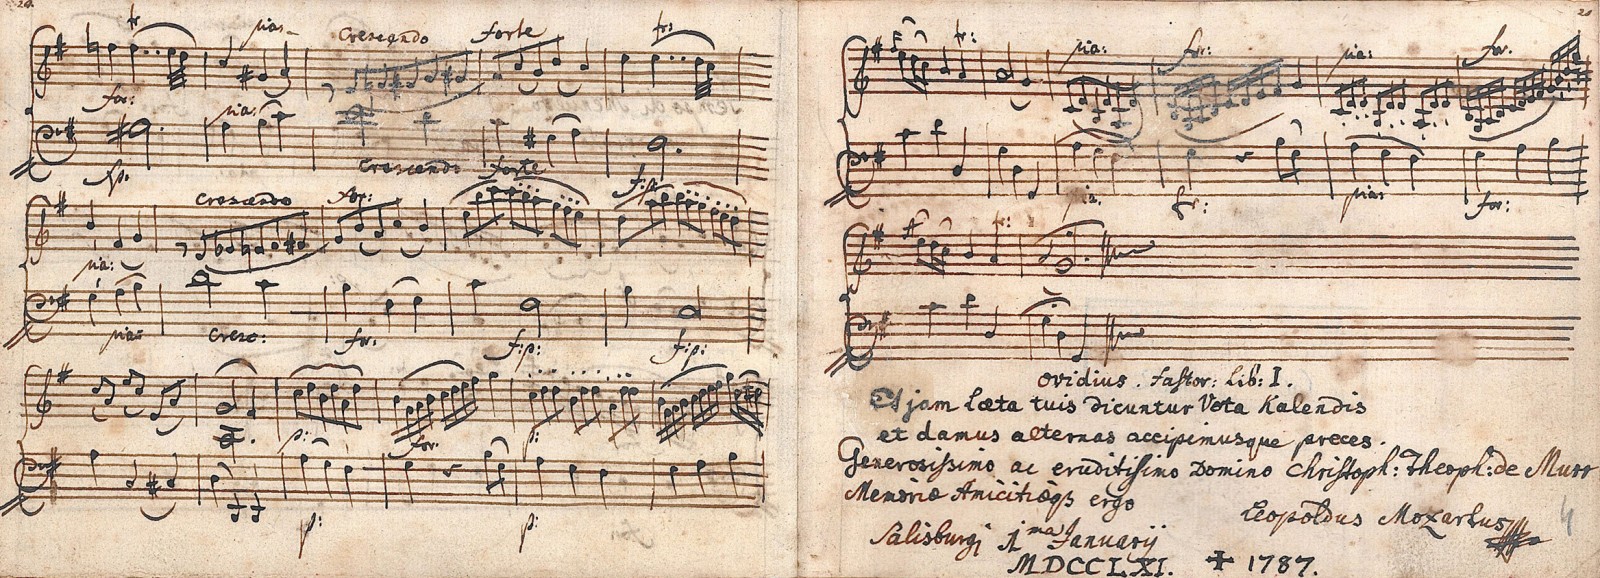 24.
tr pia: Crescendo forte tr:
for: pia:
Crescendo forte
fp: f:p:
Crescendo for:
pia:
pia: Cresc: for: f:p: f:p:
p: for: p:
p: p:
tr: pia: for: pia: for.
pia: for: pia: for:
tr:
Ovidius. Fastor: Lib: I.
Et jam læta tuis dicuntur Vota Kalendis
et damus alternas accipimusque preces.
Generosissimo ac eruditissimo Domino Christoph: Theoph: de Murr
Memoriæ Amicitiæqz ergo
Leopoldus Mozartus
Salisburgi 1ma Januarij
MDCCLXI. ✝ 1787.